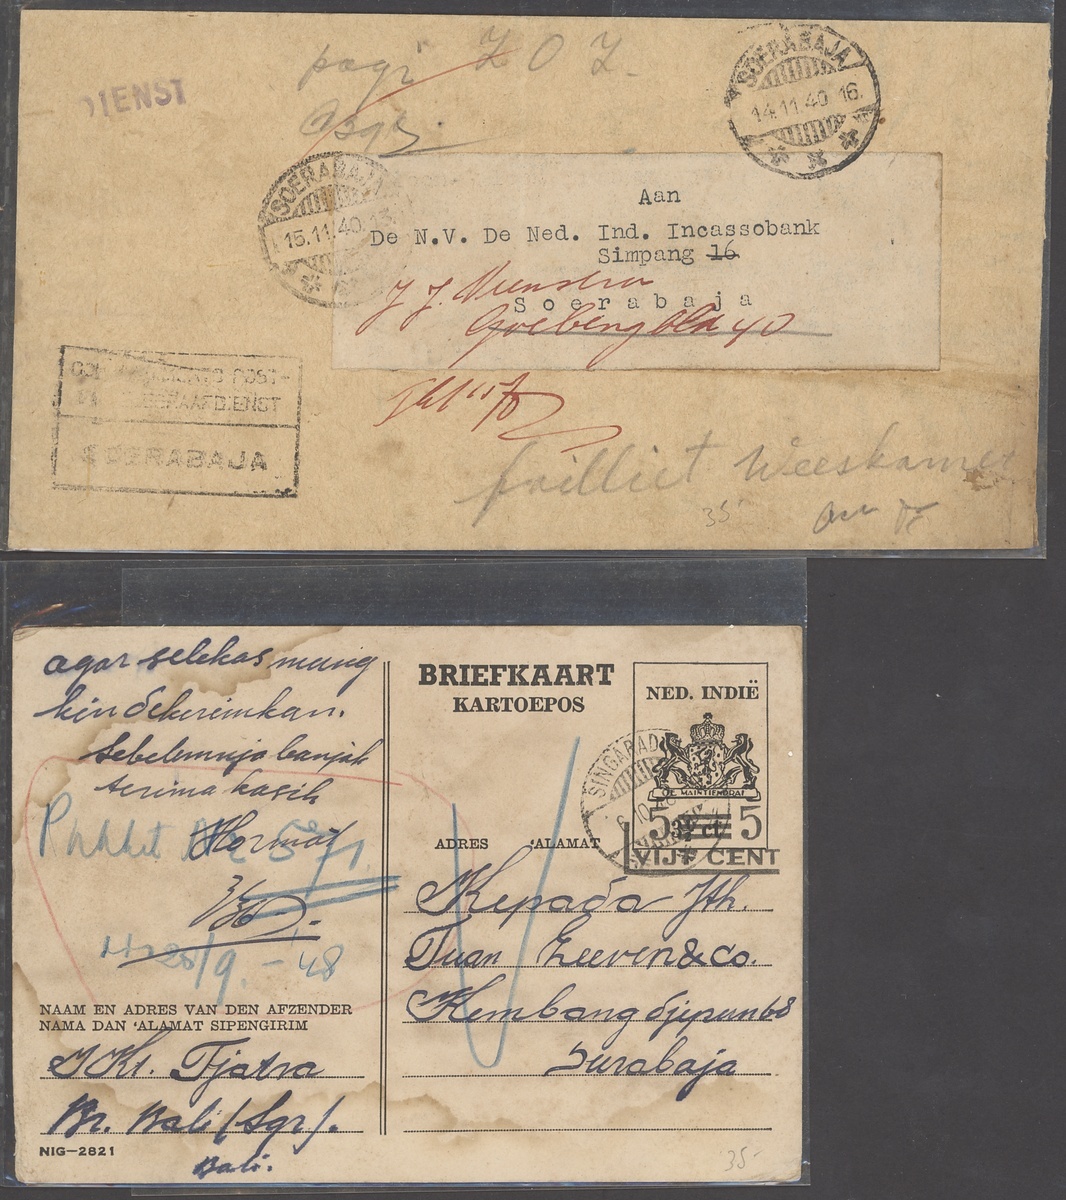 DIENST
Z O Z
SOERABAJA
14.11.40 16.
SOERABAJA
15.11.40.13.
Aan
De N.V. De Ned. Ind. Incassobank
Simpang 16
Soerabaja
40
POST-
DIENST
SOERABAJA
failliet Weeskamer
35-
agar selekas mung
kin dikirimkan.
Sebelumnja banjak
terima kasih
Hormat
Pakket No 571
28/9.-'48
NAAM EN ADRES VAN DEN AFZENDER
NAMA DAN 'ALAMAT SIPENGIRIM
Tjatra
Br. Bali (Sgr).
Bali.
NIG—2821
BRIEFKAART
KARTOEPOS
NED. INDIË
JE MAINTIENDRAI
SINGARADJA
5 3½ ct 5
VIJF CENT
ADRES 'ALAMAT
Kepada Jth.
Tuan Leeven & Co.
Kembang djepun 68
Surabaja
35-